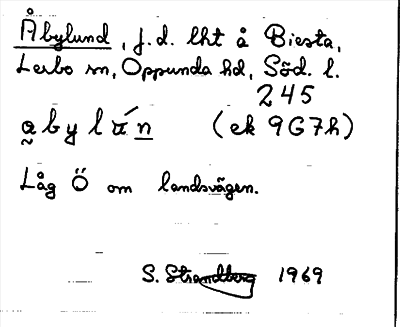 Åbylund, f.d. lht å Biesta,
Lerbo sn, Oppunda hd, Söd. l.
245
a̰bylú̄n̲ (ek 9G7h)
Låg Ö om landsvägen.
S. Strandberg 1969